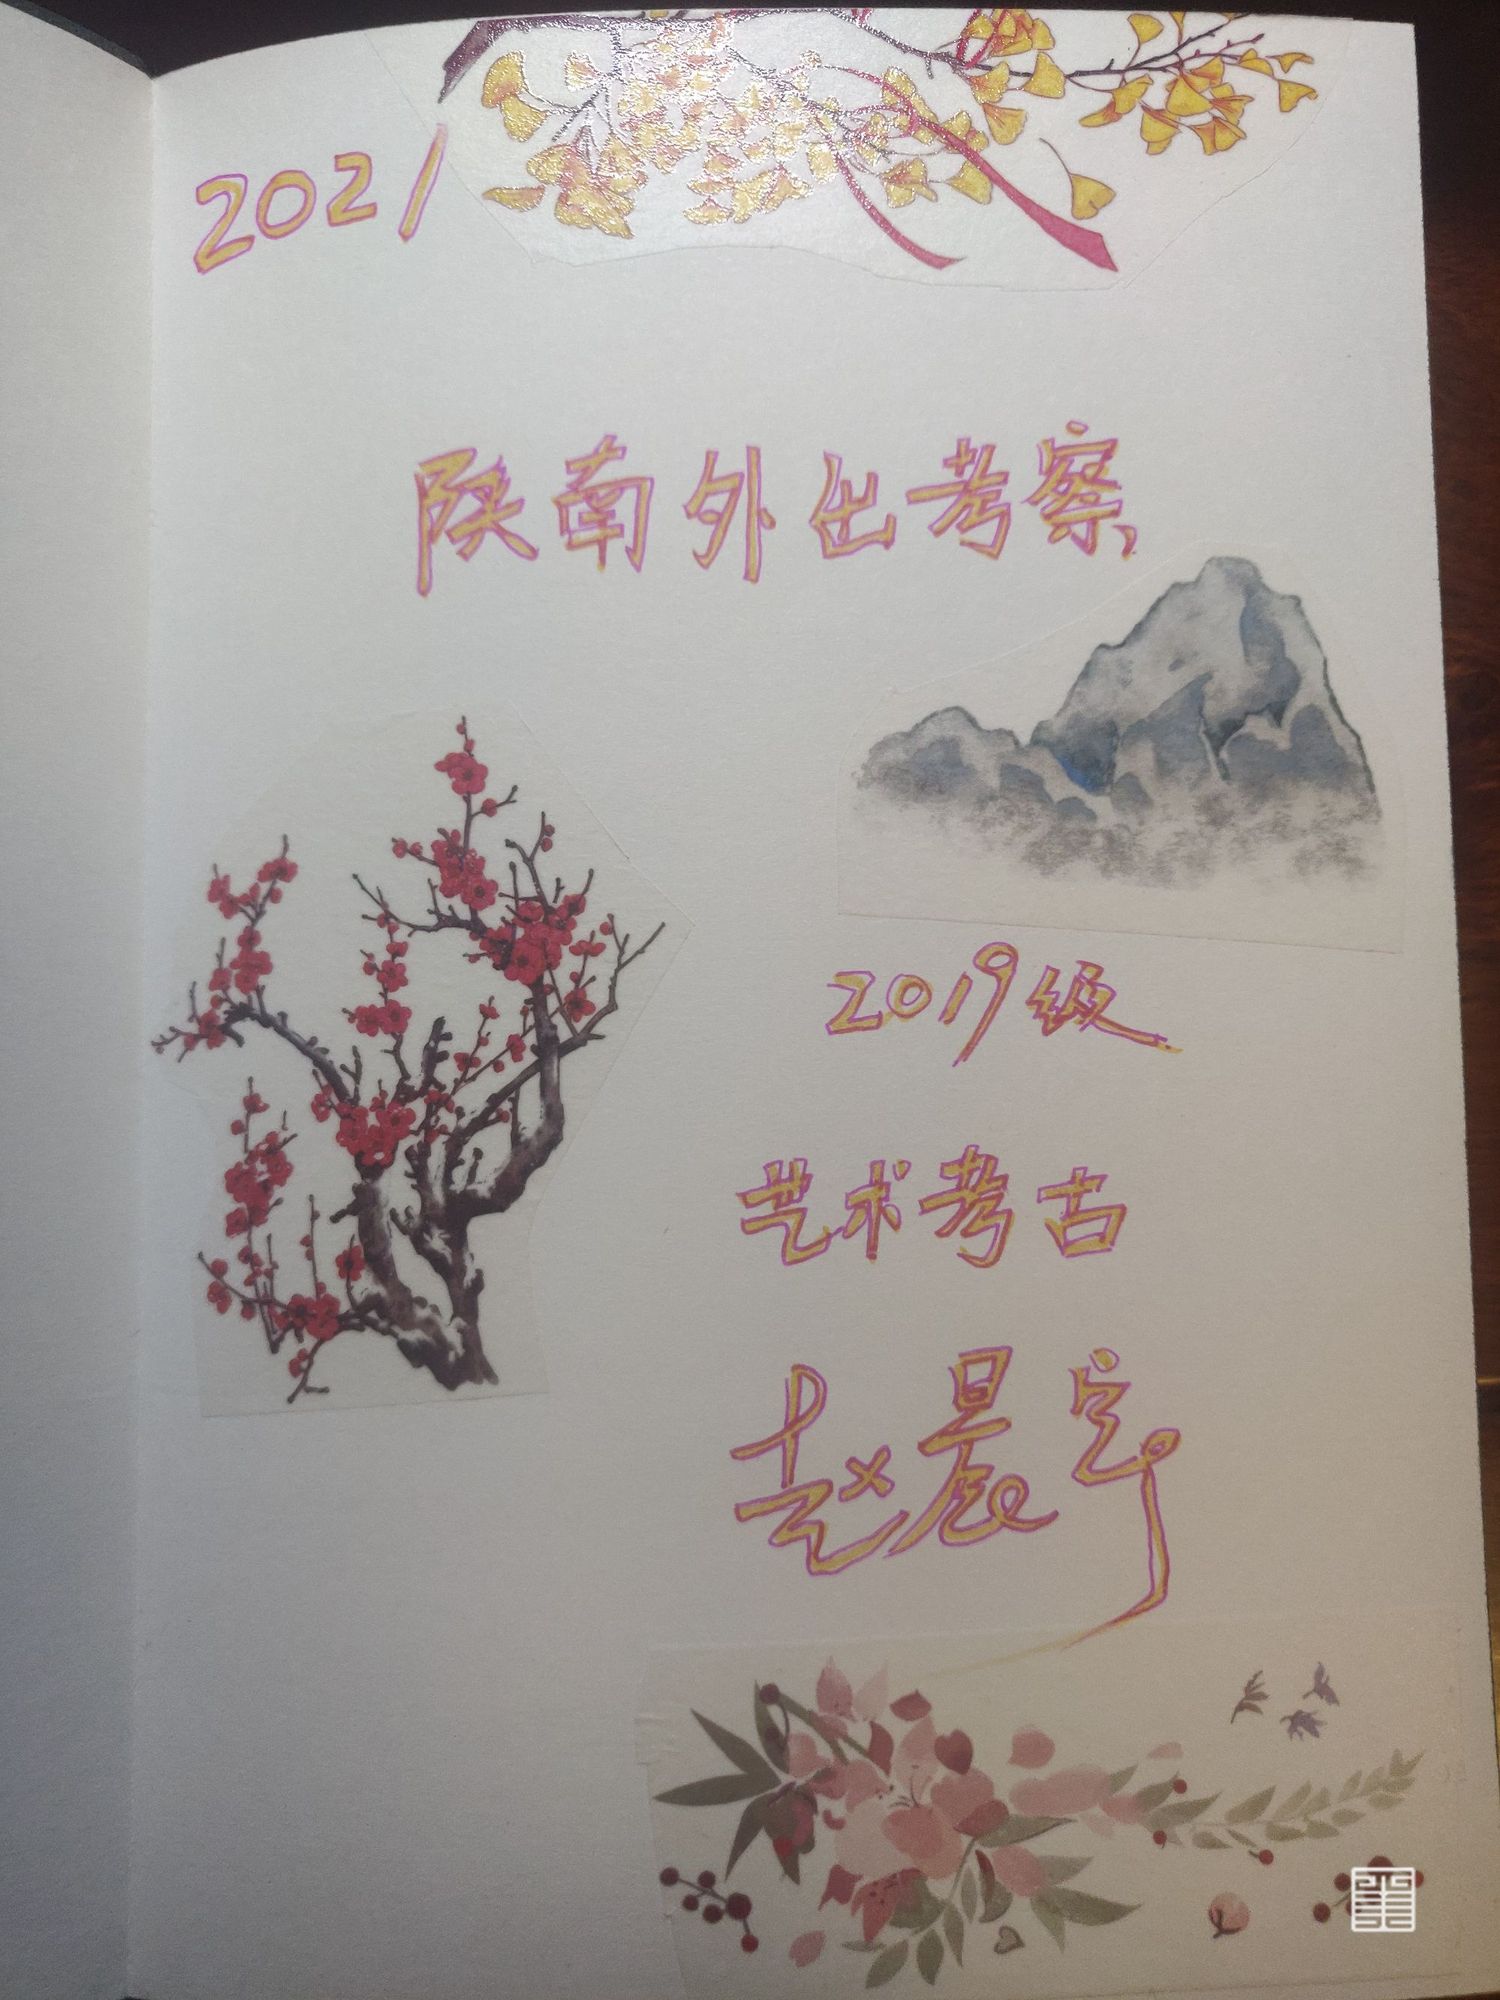 2021
陕南外出考察
2019级
艺术考古
赵晨宇